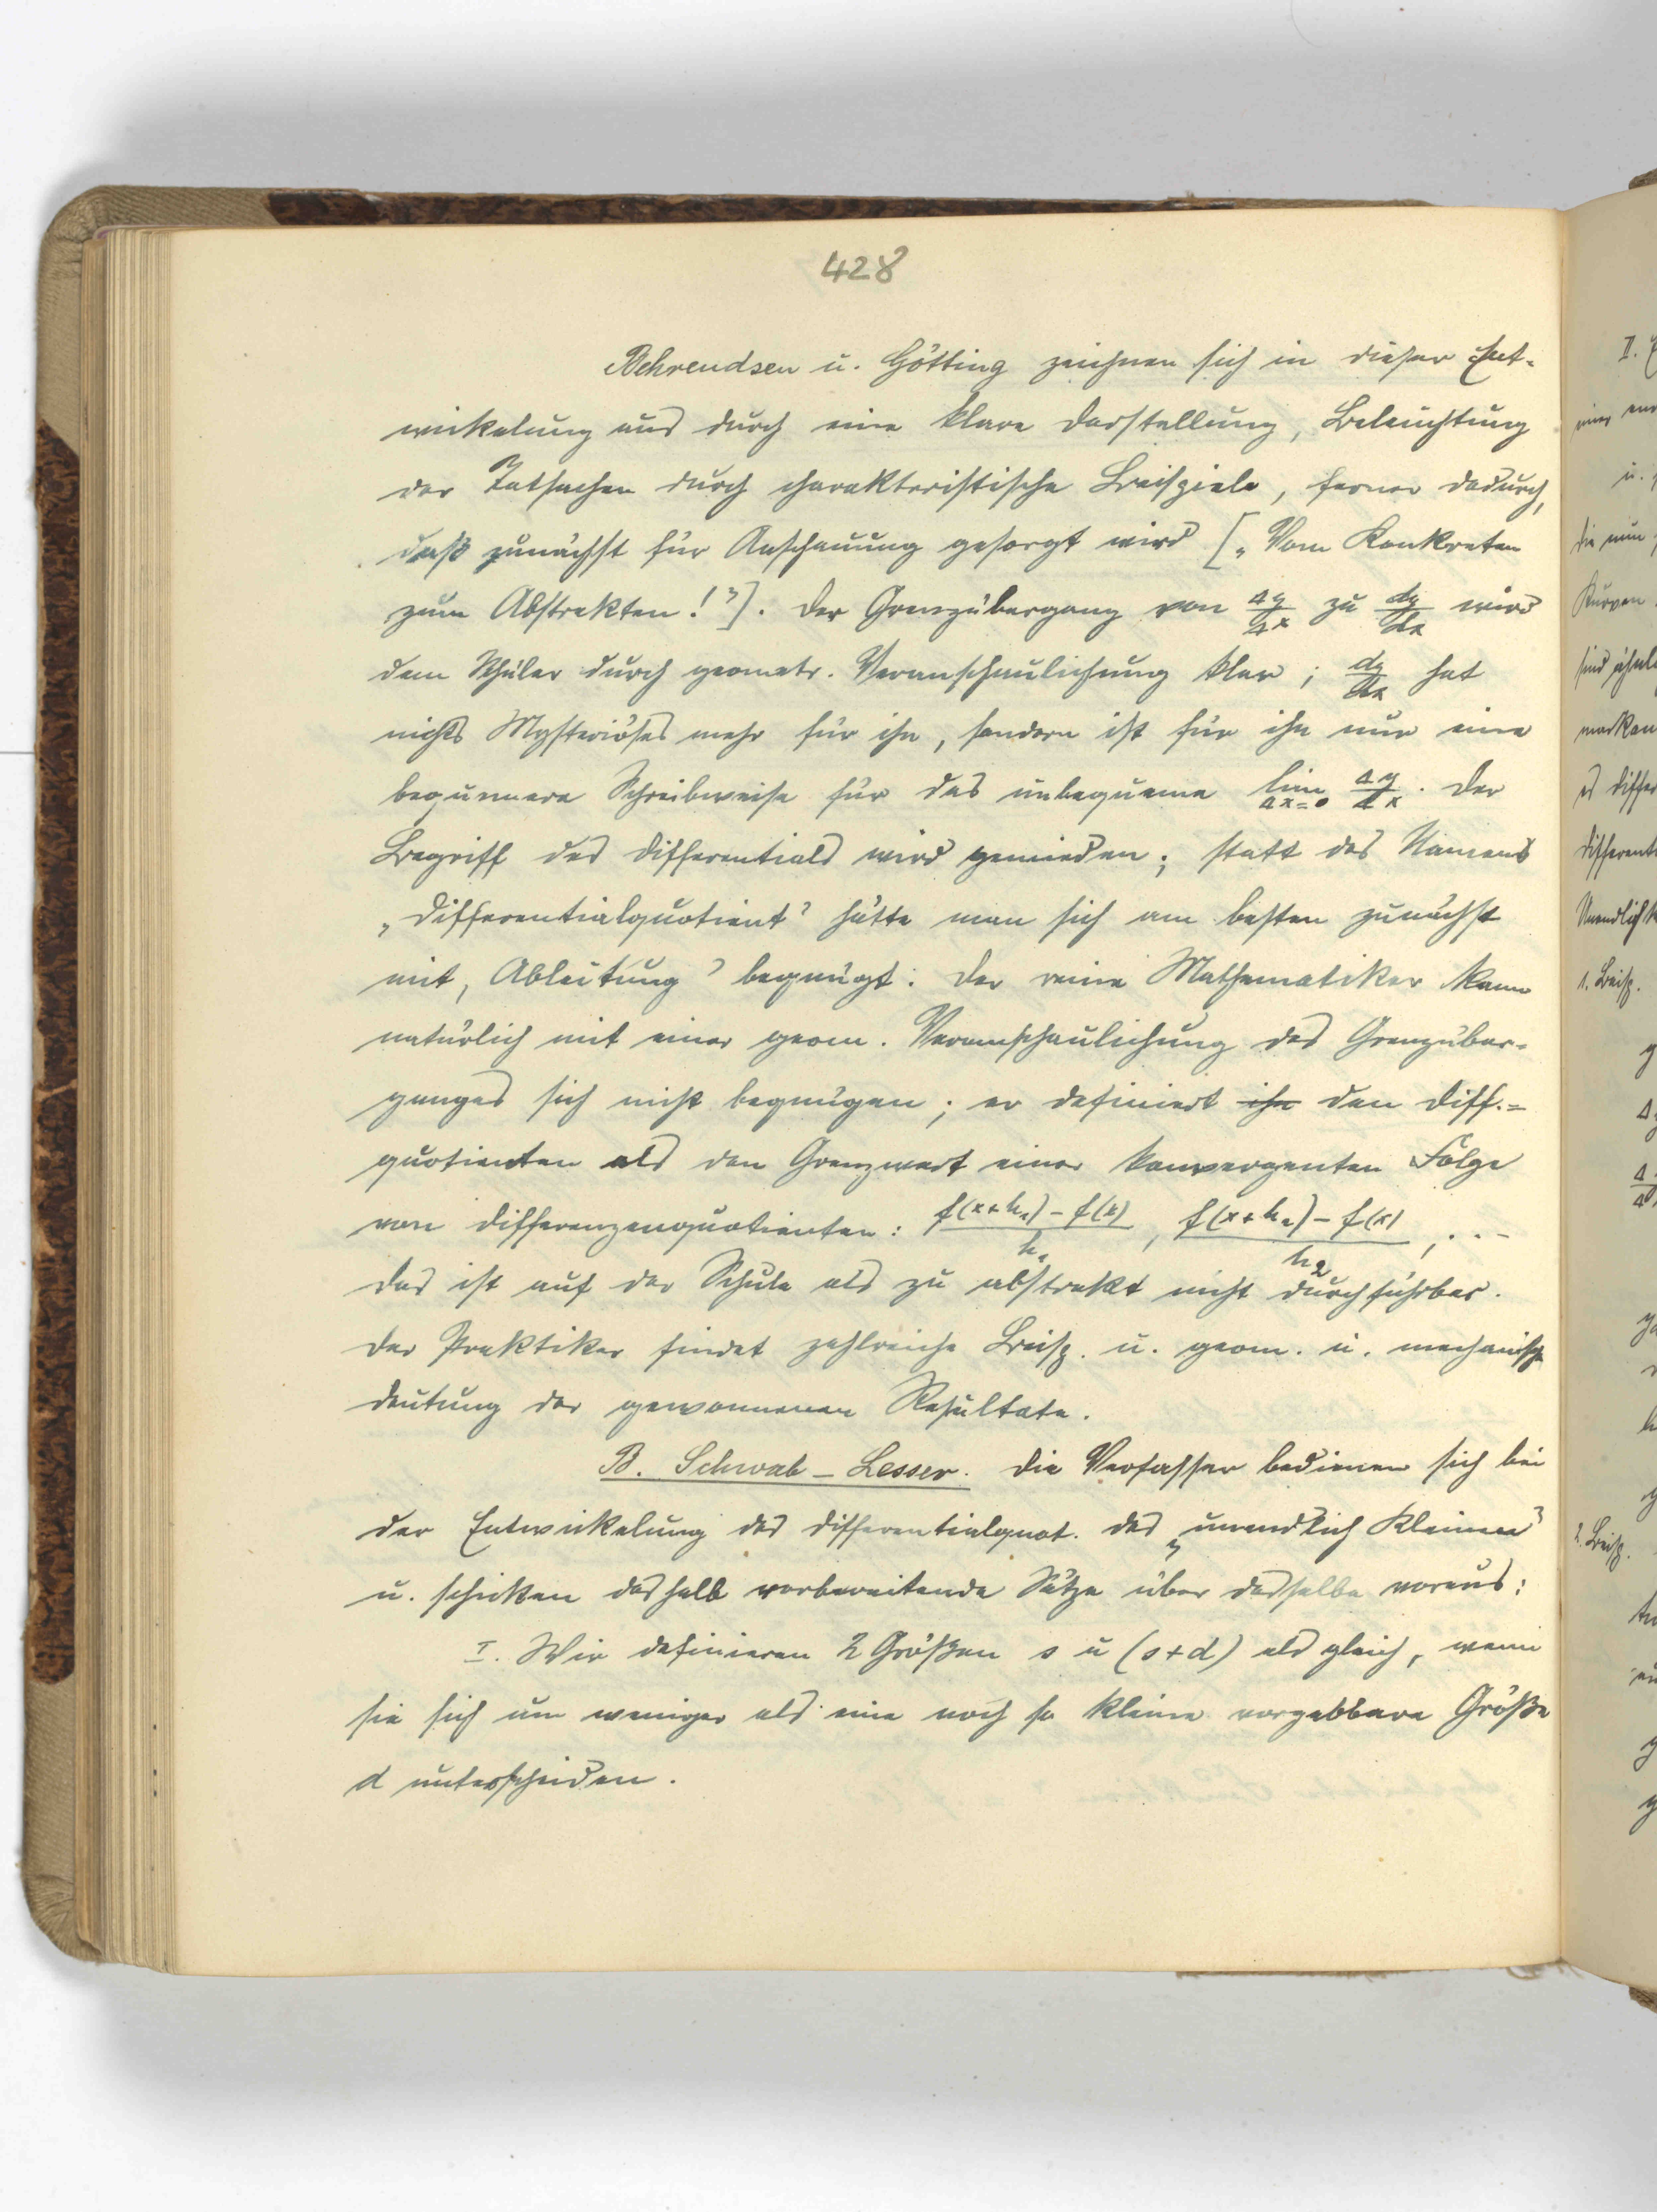 428
Behrendsen u. Götting zeichnen sich in dieser Ent-
wickelung aus durch eine klare Darstellung, Beleuchtung
der Tatsachen durch charakteristische Beispiele, ferner dadurch,
daß zunächst für Anschauung gesorgt wird [„Vom Konkreten
zum Abstrakten!"]. Der Grenzübergang von Δy/Δx zu dy/dx wird
dem Schüler durch geometr. Veranschaulichung klar; dy/dx hat
nichts Mysteriöses mehr für ihn, sondern ist für ihn nur eine
bequemere Schreibweise für das unbequeme lim Δx=0 Δy/Δx. Der
Begriff des Differentials wird gemieden; statt des Namens
„Differentialquotient" hätte man sich am besten zunächst
mit „Ableitung" begnügt. Der reine Mathematiker kann
natürlich mit einer geom. Veranschaulichung des Grenzüber-
ganges sich nicht begnügen; er definiert ihn den Diff.=
quotienten als den Grenzwert einer konvergenten Folge
von Differenzenquotienten: f(x+h₁)-f(x)/h₁, f(x+h₂)-f(x)/h₂, ...
Das ist auf der Schule als zu abstrakt nicht durchführbar.
Der Praktiker findet zahlreiche Beisp. u. geom. u. mechanische
Deutung der gewonnenen Resultate.
B. Schwab-Lesser. Die Verfasser bedienen sich bei
der Entwickelung des Differentialquot. des „unendlich Kleinen"
u. schicken deshalb vorbereitende Sätze über dasselbe voraus:
I. Wir definieren 2 Größen s u (s+d) als gleich, wenn
sie sich um weniger als eine noch so kleine vorgebbare Größe
d unterscheiden.
II.
u.
die nun
Kurven
sind
es
Unendlich
1. Beisp.
2. Beisp.